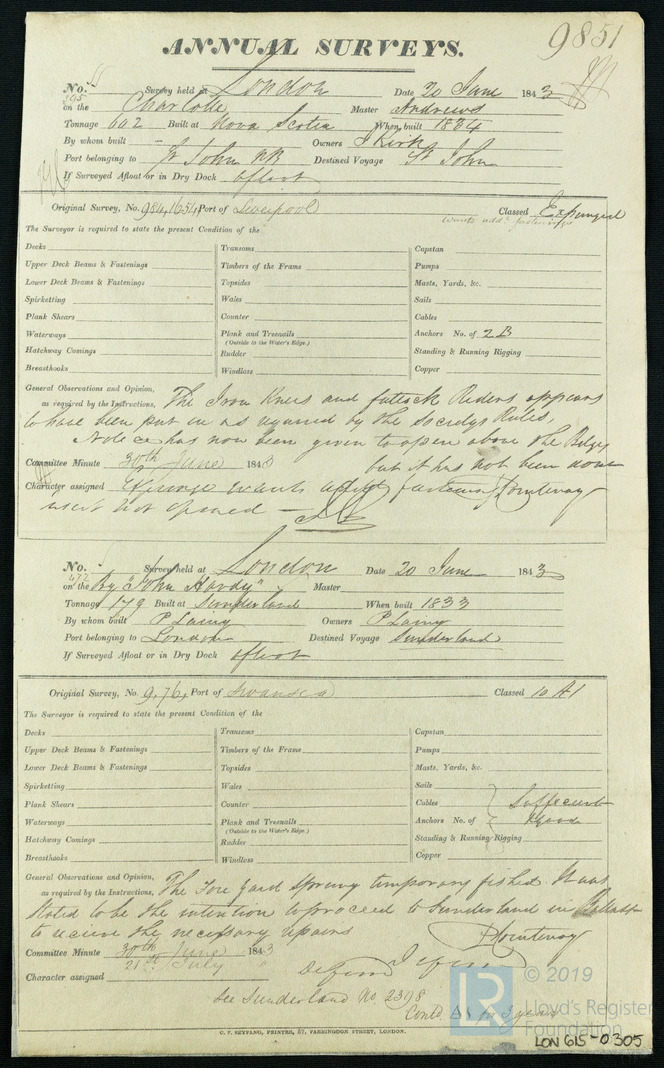 9851
ANNUAL SURVEYS.
No. 55 Survey held at London Date 20 June 1843
395 on the Charlotte Master Andrews
Tonnage 602 Built at Nova Scotia When built 1834
By whom built - Owners J Kirk
Port belonging to St John NB Destined Voyage St John
If Surveyed Afloat or in Dry Dock afloat
Original Survey, No. 984, 1654 Port of Liverpool Classed Expunged
wants addl fastenings
The Surveyor is required to state the present Condition of the
Decks Transoms Capstan
Upper Deck Beams & Fastenings Timbers of the Frame Pumps
Lower Deck Beams & Fastenings Topsides Masts, Yards, &c.
Spirketting Wales Sails
Plank Shears Counter Cables
Waterways Plank and Treenails Anchors No. of 2 B
(Outside to the Water's Edge.)
Hatchway Comings Rudder Standing & Running Rigging
Breasthooks Windlass Copper
General Observations and Opinion, The Iron Knees and futtock Riders appears
as required by the Instructions,
to have been put in as required by the Societys Rules,
Notice has now been given to open above the Bilges
but it has not been done
Committee Minute 30th June 1843
Character assigned Expunge wants addl fastenings Fountenay
not opened -
No. Survey held at London Date 20 June 1843
472 on the Bg "John Hardy" Master
Tonnage 179 Built at Sunderland When built 1833
By whom built P Laing Owners P Laing
Port belonging to London Destined Voyage Sunderland
If Surveyed Afloat or in Dry Dock afloat
Original Survey, No. 9,76, Port of Swansea Classed 10 A1
The Surveyor is required to state the present Condition of the
Decks Transoms Capstan
Upper Deck Beams & Fastenings Timbers of the Frame Pumps
Lower Deck Beams & Fastenings Topsides Masts, Yards, &c.
Spirketting Wales Sails
Plank Shears Counter Cables Sufficient
Waterways Plank and Treenails Anchors No. of & good
(Outside to the Water's Edge.)
Hatchway Comings Rudder Standing & Running Rigging
Breasthooks Windlass Copper
General Observations and Opinion,
as required by the Instructions, The Fore Yard Sprung temporary fished It was
stated to be the intention to proceed to Sunderland in Ballast
to receive the necessary repairs
Fountenay
Committee Minute 30th June 1843
21st July
Character assigned Deferred
See Sunderland No. 2398
Contd A1 for 3 years
C. F. SEYFANG, PRINTER, 57, FARRINGDON STREET, LONDON.
LR © 2019
Lloyd's Register
Foundation
LON 615-0305